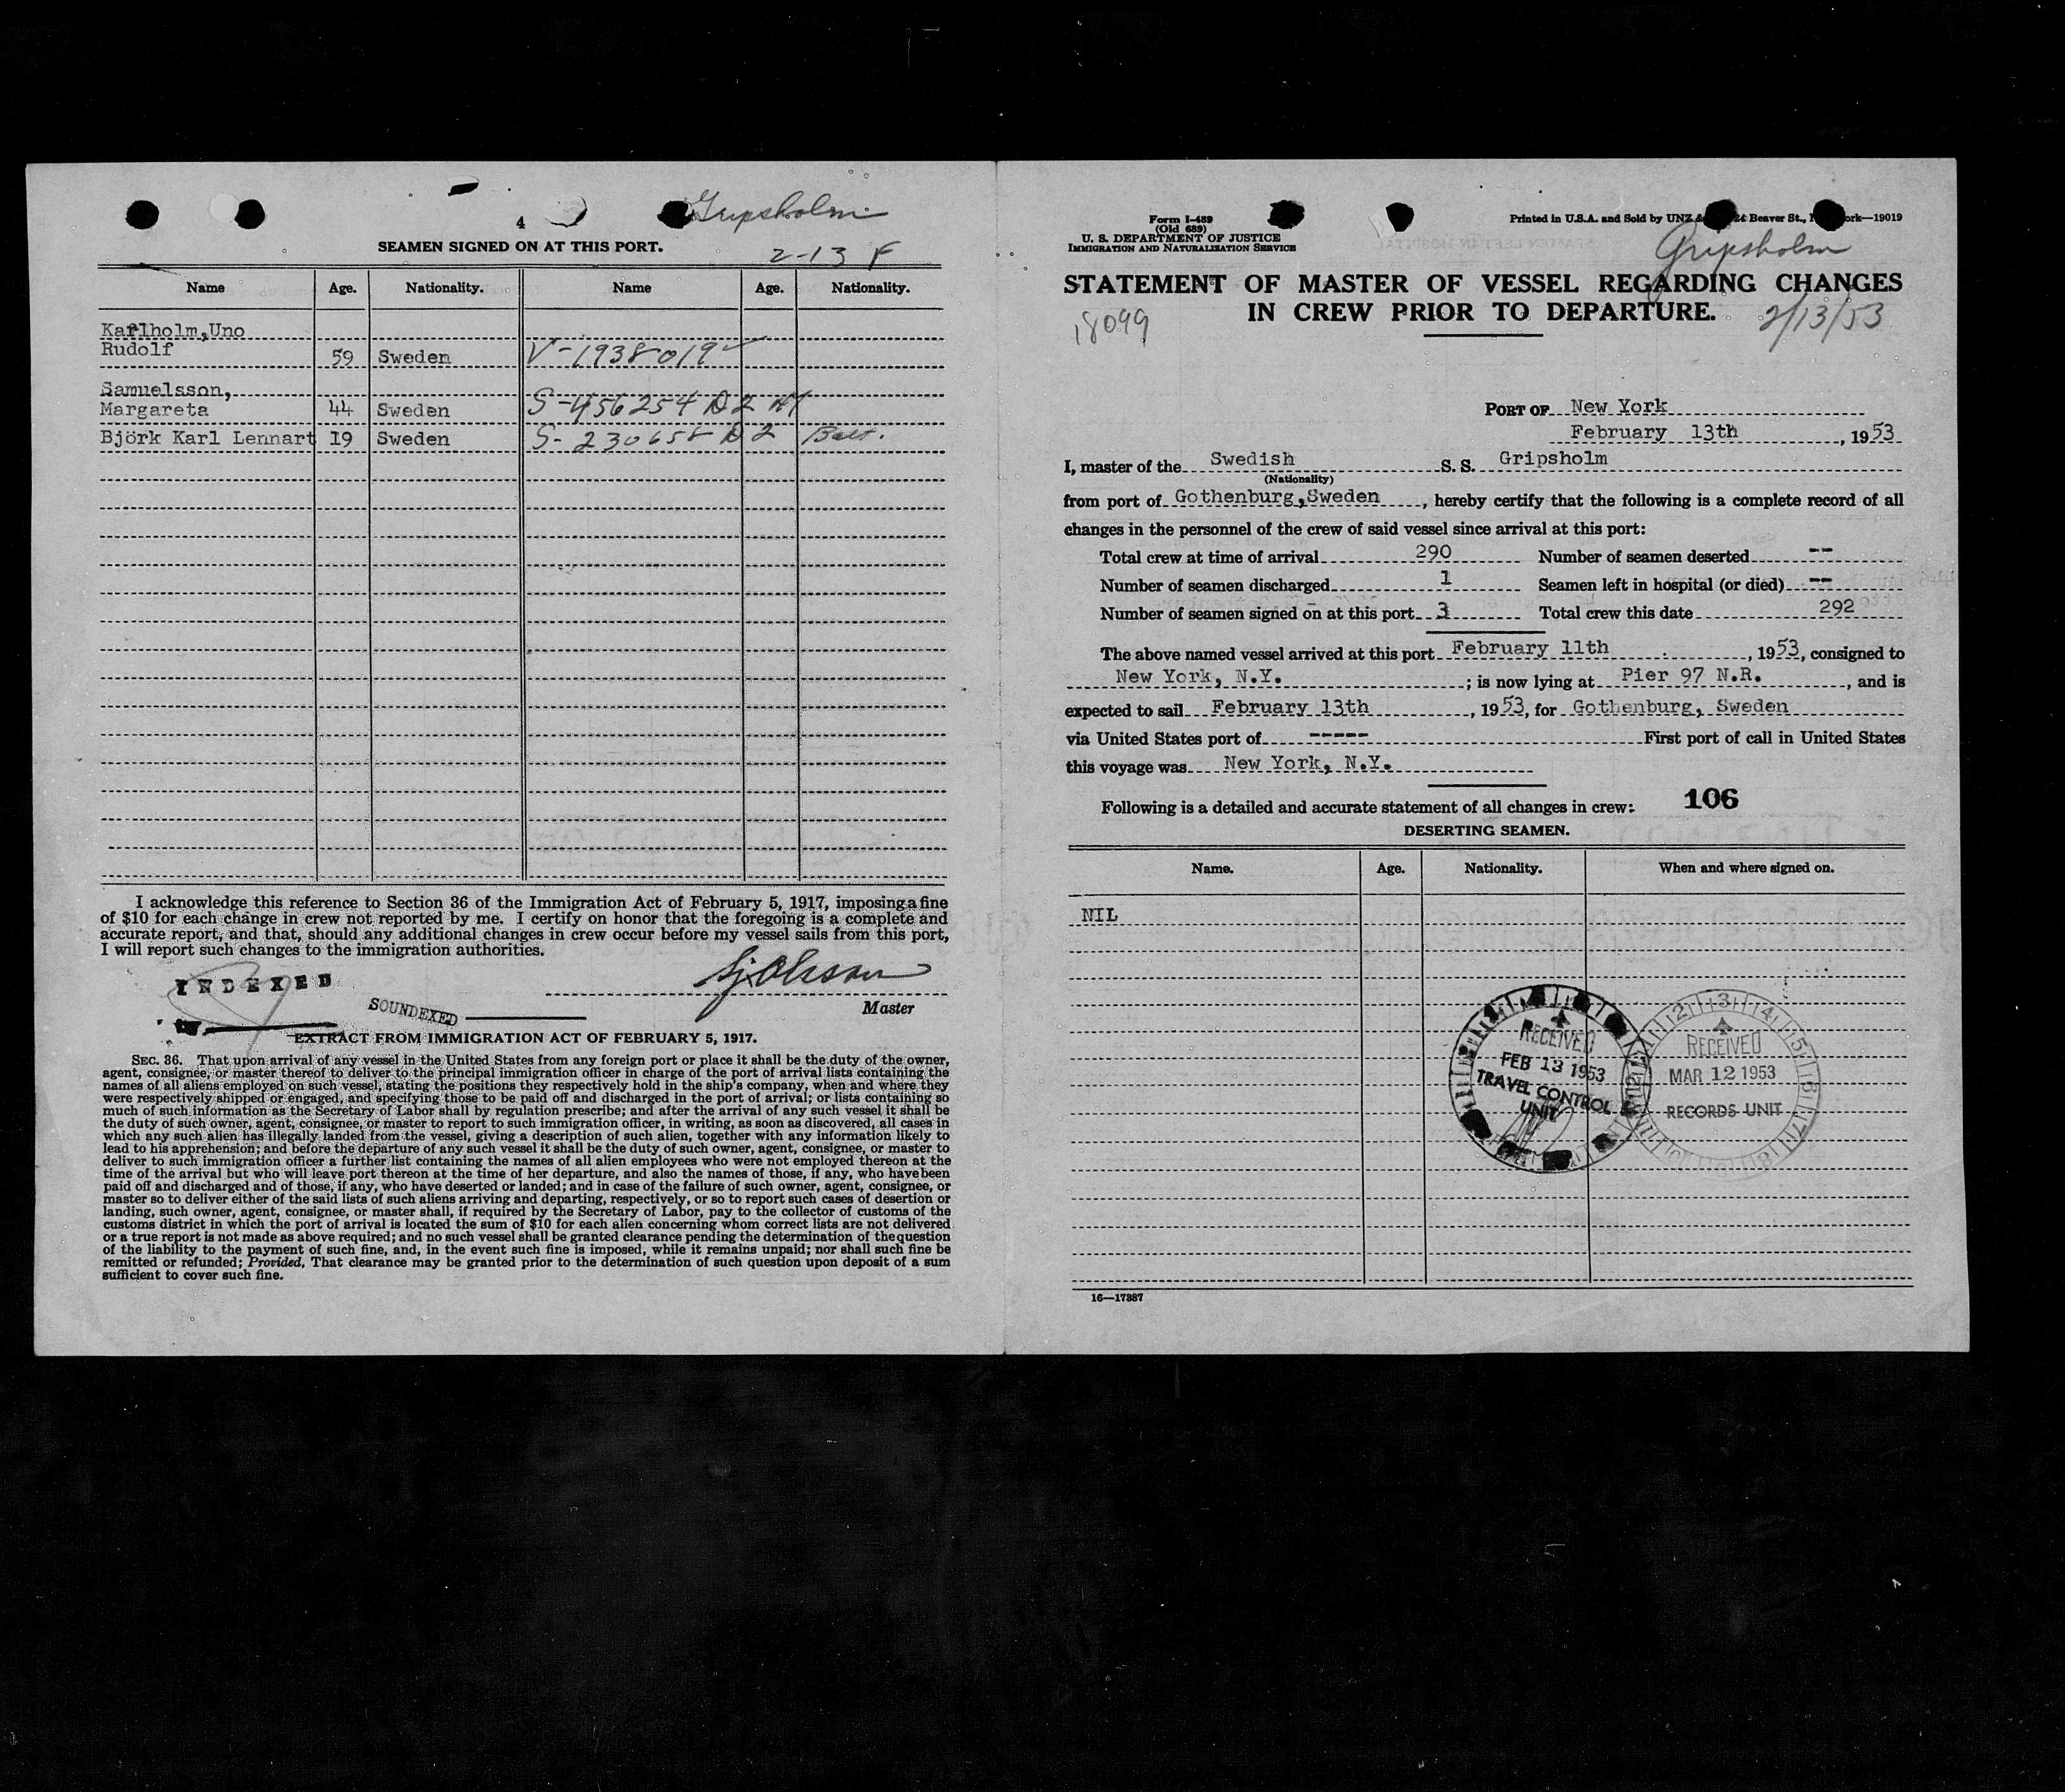 4
Gripsholm
SEAMEN SIGNED ON AT THIS PORT.
2-13 F
Name Age. Nationality. Name Age. Nationality.
Karlholm,Uno
Rudolf 59 Sweden V-1938019
Samuelsson,
Margareta 44 Sweden S-456254 D2
Björk Karl Lennart 19 Sweden S-230658 D2 Balt.
I acknowledge this reference to Section 36 of the Immigration Act of February 5, 1917, imposing a fine
of $10 for each change in crew not reported by me. I certify on honor that the foregoing is a complete and
accurate report, and that, should any additional changes in crew occur before my vessel sails from this port,
I will report such changes to the immigration authorities.
INDEXED
SOUNDEXED
Master
EXTRACT FROM IMMIGRATION ACT OF FEBRUARY 5, 1917.
SEC. 36. That upon arrival of any vessel in the United States from any foreign port or place it shall be the duty of the owner,
agent, consignee, or master thereof to deliver to the principal immigration officer in charge of the port of arrival lists containing the
names of all aliens employed on such vessel, stating the positions they respectively hold in the ship's company, when and where they
were respectively shipped or engaged, and specifying those to be paid off and discharged in the port of arrival; or lists containing so
much of such information as the Secretary of Labor shall by regulation prescribe; and after the arrival of any such vessel it shall be
the duty of such owner, agent, consignee, or master to report to such immigration officer, in writing, as soon as discovered, all cases in
which any such alien has illegally landed from the vessel, giving a description of such alien, together with any information likely to
lead to his apprehension; and before the departure of any such vessel it shall be the duty of such owner, agent, consignee, or master to
deliver to such immigration officer a further list containing the names of all alien employees who were not employed thereon at the
time of the arrival but who will leave port thereon at the time of her departure, and also the names of those, if any, who have been
paid off and discharged and of those, if any, who have deserted or landed; and in case of the failure of such owner, agent, consignee, or
master so to deliver either of the said lists of such aliens arriving and departing, respectively, or so to report such cases of desertion or
landing, such owner, agent, consignee, or master shall, if required by the Secretary of Labor, pay to the collector of customs of the
customs district in which the port of arrival is located the sum of $10 for each alien concerning whom correct lists are not delivered
or a true report is not made as above required; and no such vessel shall be granted clearance pending the determination of the question
of the liability to the payment of such fine, and, in the event such fine is imposed, while it remains unpaid; nor shall such fine be
remitted or refunded; Provided, That clearance may be granted prior to the determination of such question upon deposit of a sum
sufficient to cover such fine.
Form I-489
(Old 689)
U. S. DEPARTMENT OF JUSTICE
IMMIGRATION AND NATURALIZATION SERVICE
Printed in U.S.A. and Sold by UNZ & Beaver St., ork—19019
Gripsholm
STATEMENT OF MASTER OF VESSEL REGARDING CHANGES
IN CREW PRIOR TO DEPARTURE.
18099
2/13/53
PORT OF New York
February 13th, 1953
I, master of the Swedish S. S. Gripsholm
(Nationality)
from port of Gothenburg,Sweden, hereby certify that the following is a complete record of all
changes in the personnel of the crew of said vessel since arrival at this port:
Total crew at time of arrival 290 Number of seamen deserted --
Number of seamen discharged 1 Seamen left in hospital (or died) --
Number of seamen signed on at this port 3 Total crew this date 292
The above named vessel arrived at this port February 11th, 1953, consigned to
New York, N.Y. ; is now lying at Pier 97 N.R., and is
expected to sail February 13th, 1953, for Gothenburg, Sweden
via United States port of ----- First port of call in United States
this voyage was New York, N.Y.
Following is a detailed and accurate statement of all changes in crew: 106
DESERTING SEAMEN.
Name. Age. Nationality. When and where signed on.
NIL
RECEIVED
FEB 13 1953
TRAVEL CONTROL
UNIT
RECEIVED
MAR 12 1953
RECORDS UNIT
16—17887